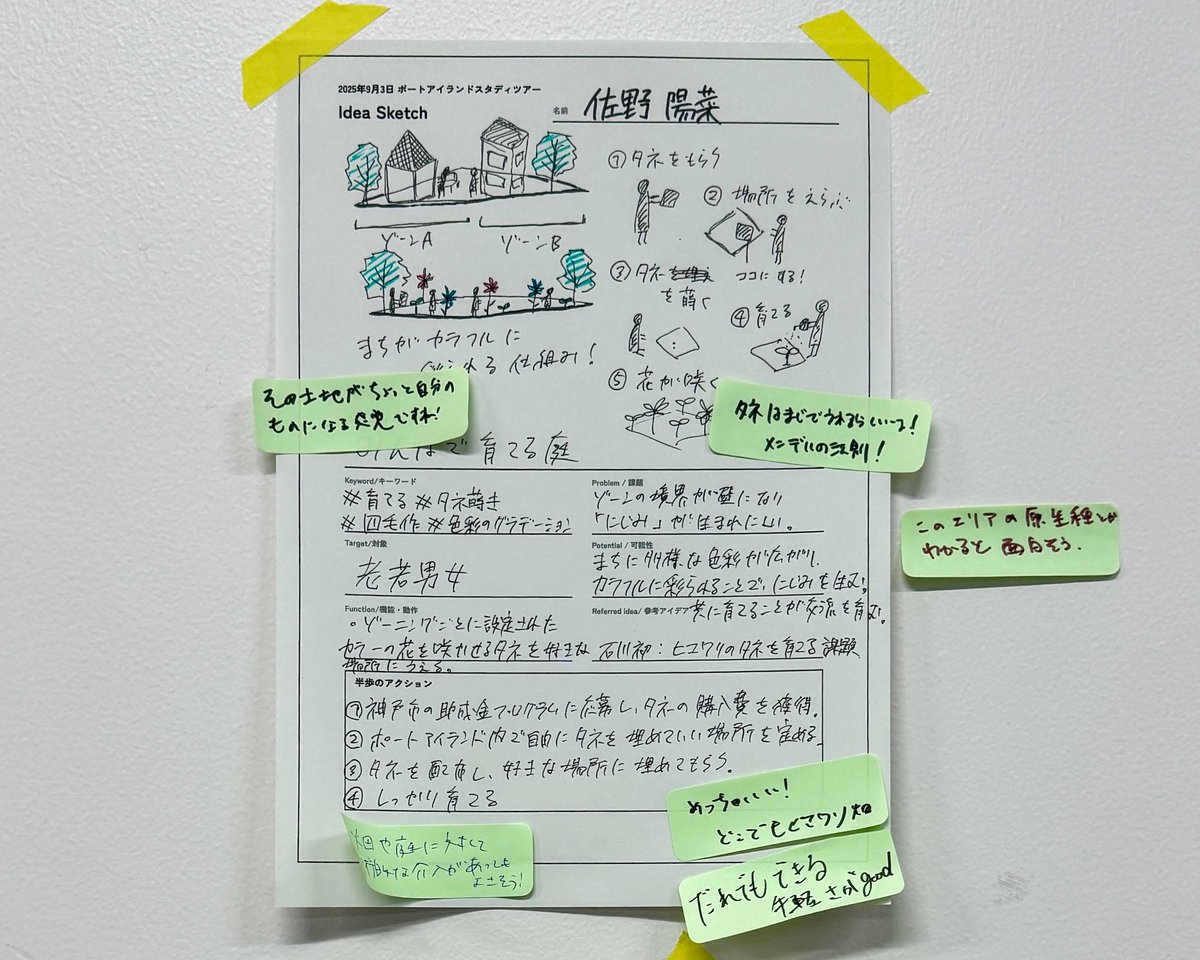 2025年9月3日 ポートアイランドスタディツアー
Idea Sketch
名前 佐野 陽菜
ゾーンA ゾーンB
まちがカラフルに
られる仕組み!
①タネをもらう
②場所をえらぶ
③タネ
を蒔く
ココにする!
④育てる
⑤花が咲く
その土地がちょっと自分の
ものになる感覚ですね!
タネはまじでうれるらしいっす!
メンデルの法則!
で育てる庭
Keyword/キーワード
#育てる #タネ蒔き
#四毛作 #色彩のグラデーション
Problem / 課題
ゾーンの境界が壁になり
「にじみ」が生まれにくい。
このエリアの原生種とか
わかると面白そう.
Target/対象
老若男女
Potential / 可能性
まちに多様な色彩が広がり、
カラフルに彩られることで、にじみを生む!
共に育てることが交流を育む!
Function/機能・動作
・ゾーニングごとに設定された
カラーの花を咲かせるタネを好きな
場所にうえる。
Referred idea/ 参考アイデア
石川初:ヒマワリのタネを育てる課題
半歩のアクション
①神戸市の助成金プログラムに応募し、タネの購入費を獲得.
②ポートアイランド内で自由にタネを埋めていい場所を定める.
③タネを配布し、好きな場所に埋めてもらう.
④しっかり育てる
めっちゃいい!
どこでも
畑や庭に
な介入があっても
よさそう!
だれでもできる
手軽さがgood